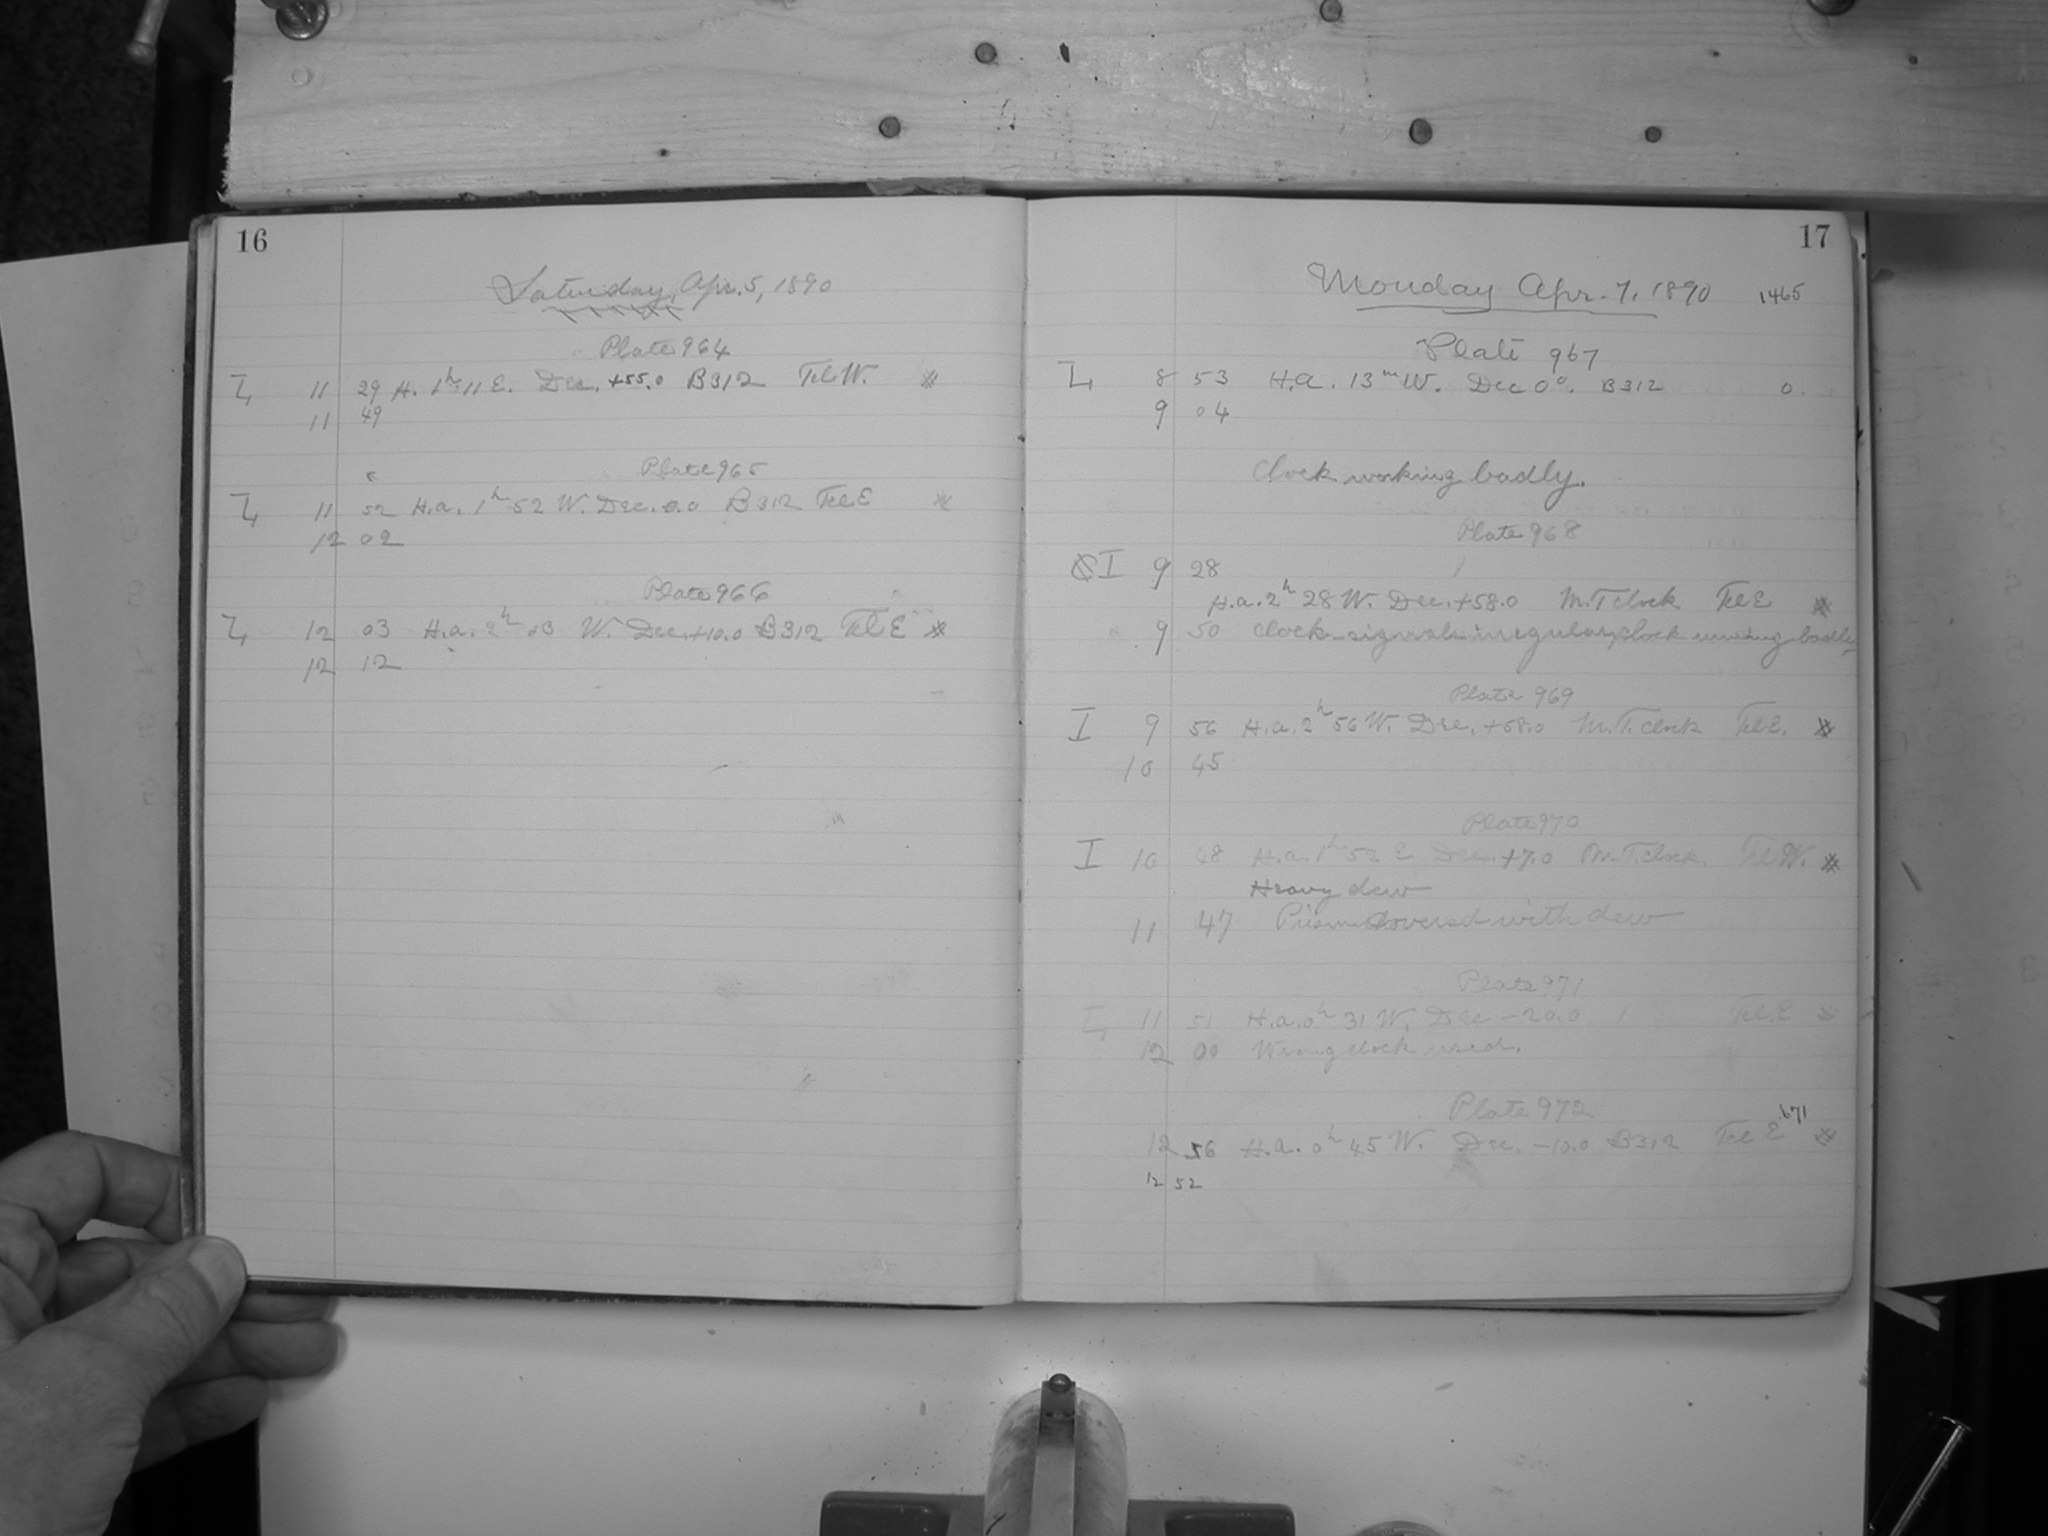 16
Saturday, Apr. 5, 1890
Plate 964
L 11 29 H. 1h 11 E. Dec. +55.0 B312 Tel W. *
11 49
Plate 965
L 11 52 H.a. 1h 52 W. Dec. 0.0 B312 Tel E *
12 02
Plate 966
L 12 03 H.a. 2h 03 W. Dec. +10.0 B312 Tel E *
12 12
17
Monday Apr. 7, 1890 1465
Plate 967
L 8 53 H.a. 13m W. Dec 0°. B312 0.
9 04
Clock working badly.
Plate 968
I 9 28
H.a. 2h 28 W. Dec. +58.0 M.T clock Tel E *
9 50 Clock signals irregular, clock running badly
Plate 969
I 9 56 H.a. 2h 56 W. Dec. +58.0 M.T. clock Tel E. *
10 45
Plate 970
I 10 48 H.a. 1h 52 E Dec. +7.0 M.T. clock. Tel W. *
Heavy dew
11 47 Prism covered with dew
Plate 971
I 11 51 H.a. 0h 31 W. Dec -20.0 Tel. E *
12 00 Wrong clock used.
Plate 972
12 56 H.a. 0h 45 W. Dec. -10.0 B312 Tel E 671 *
12 52